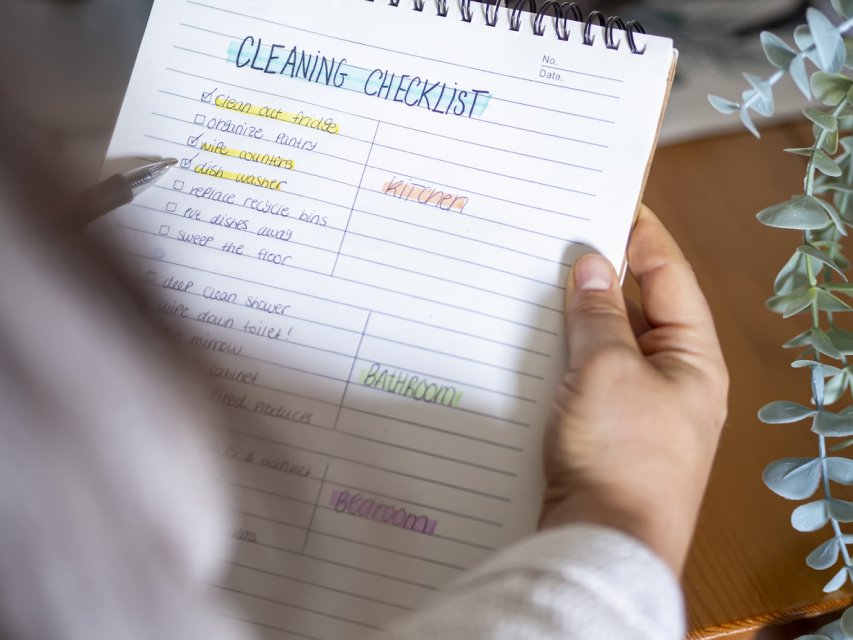 CLEANING CHECKLIST
No.
Date.
clean out fridge
organize pantry
wipe counters
dish washer
replace recycle bins
put dishes away
sweep the floor
kitchen
deep clean shower
wipe down toilet!
mirrow
cabinet
products
BATHROOM
& blanket
Bedroom